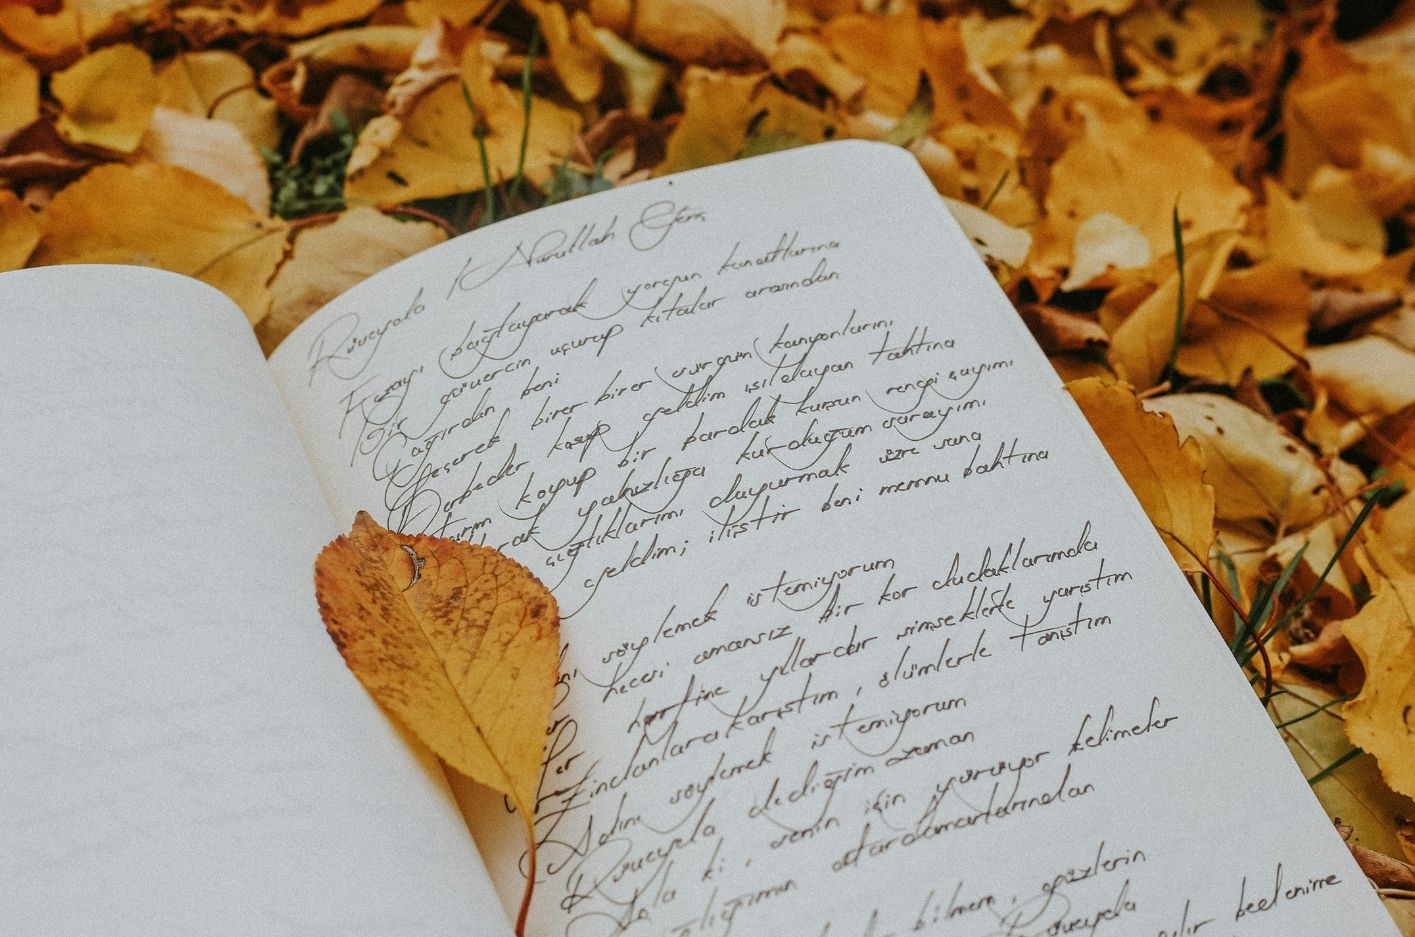 Rüveyda / Nurullah Genç
Fırazı bağlayarak yorgun kanatlarına
Bir güvercin uçurup kıtalar arasından
Çağırdan beni
Geçerek birer birer sürgün kanyonlarını
Derbeder koşup geldim ışıldayan tahtına
koyup bir bardak kurşun rengi çayımı
yalnızlığa kurduğum sarayımı
çığlıklarımı duyurmak üzre sana
geldim; iliştir beni memnu bahtına
söylemek istemiyorum
hecesi amansız bir kor dudaklarımda
harfine yıllardır şimşeklerle yarıştım
Zindanlara karıştım, ölümlerle tanıştım
Adını söylemek istemiyorum
Rüveyda dediğim zaman
Anla ki, senin için yürüyor kelimeler
atardamarlarından
bilmem, gözlerin
Rüveyda
bedenime